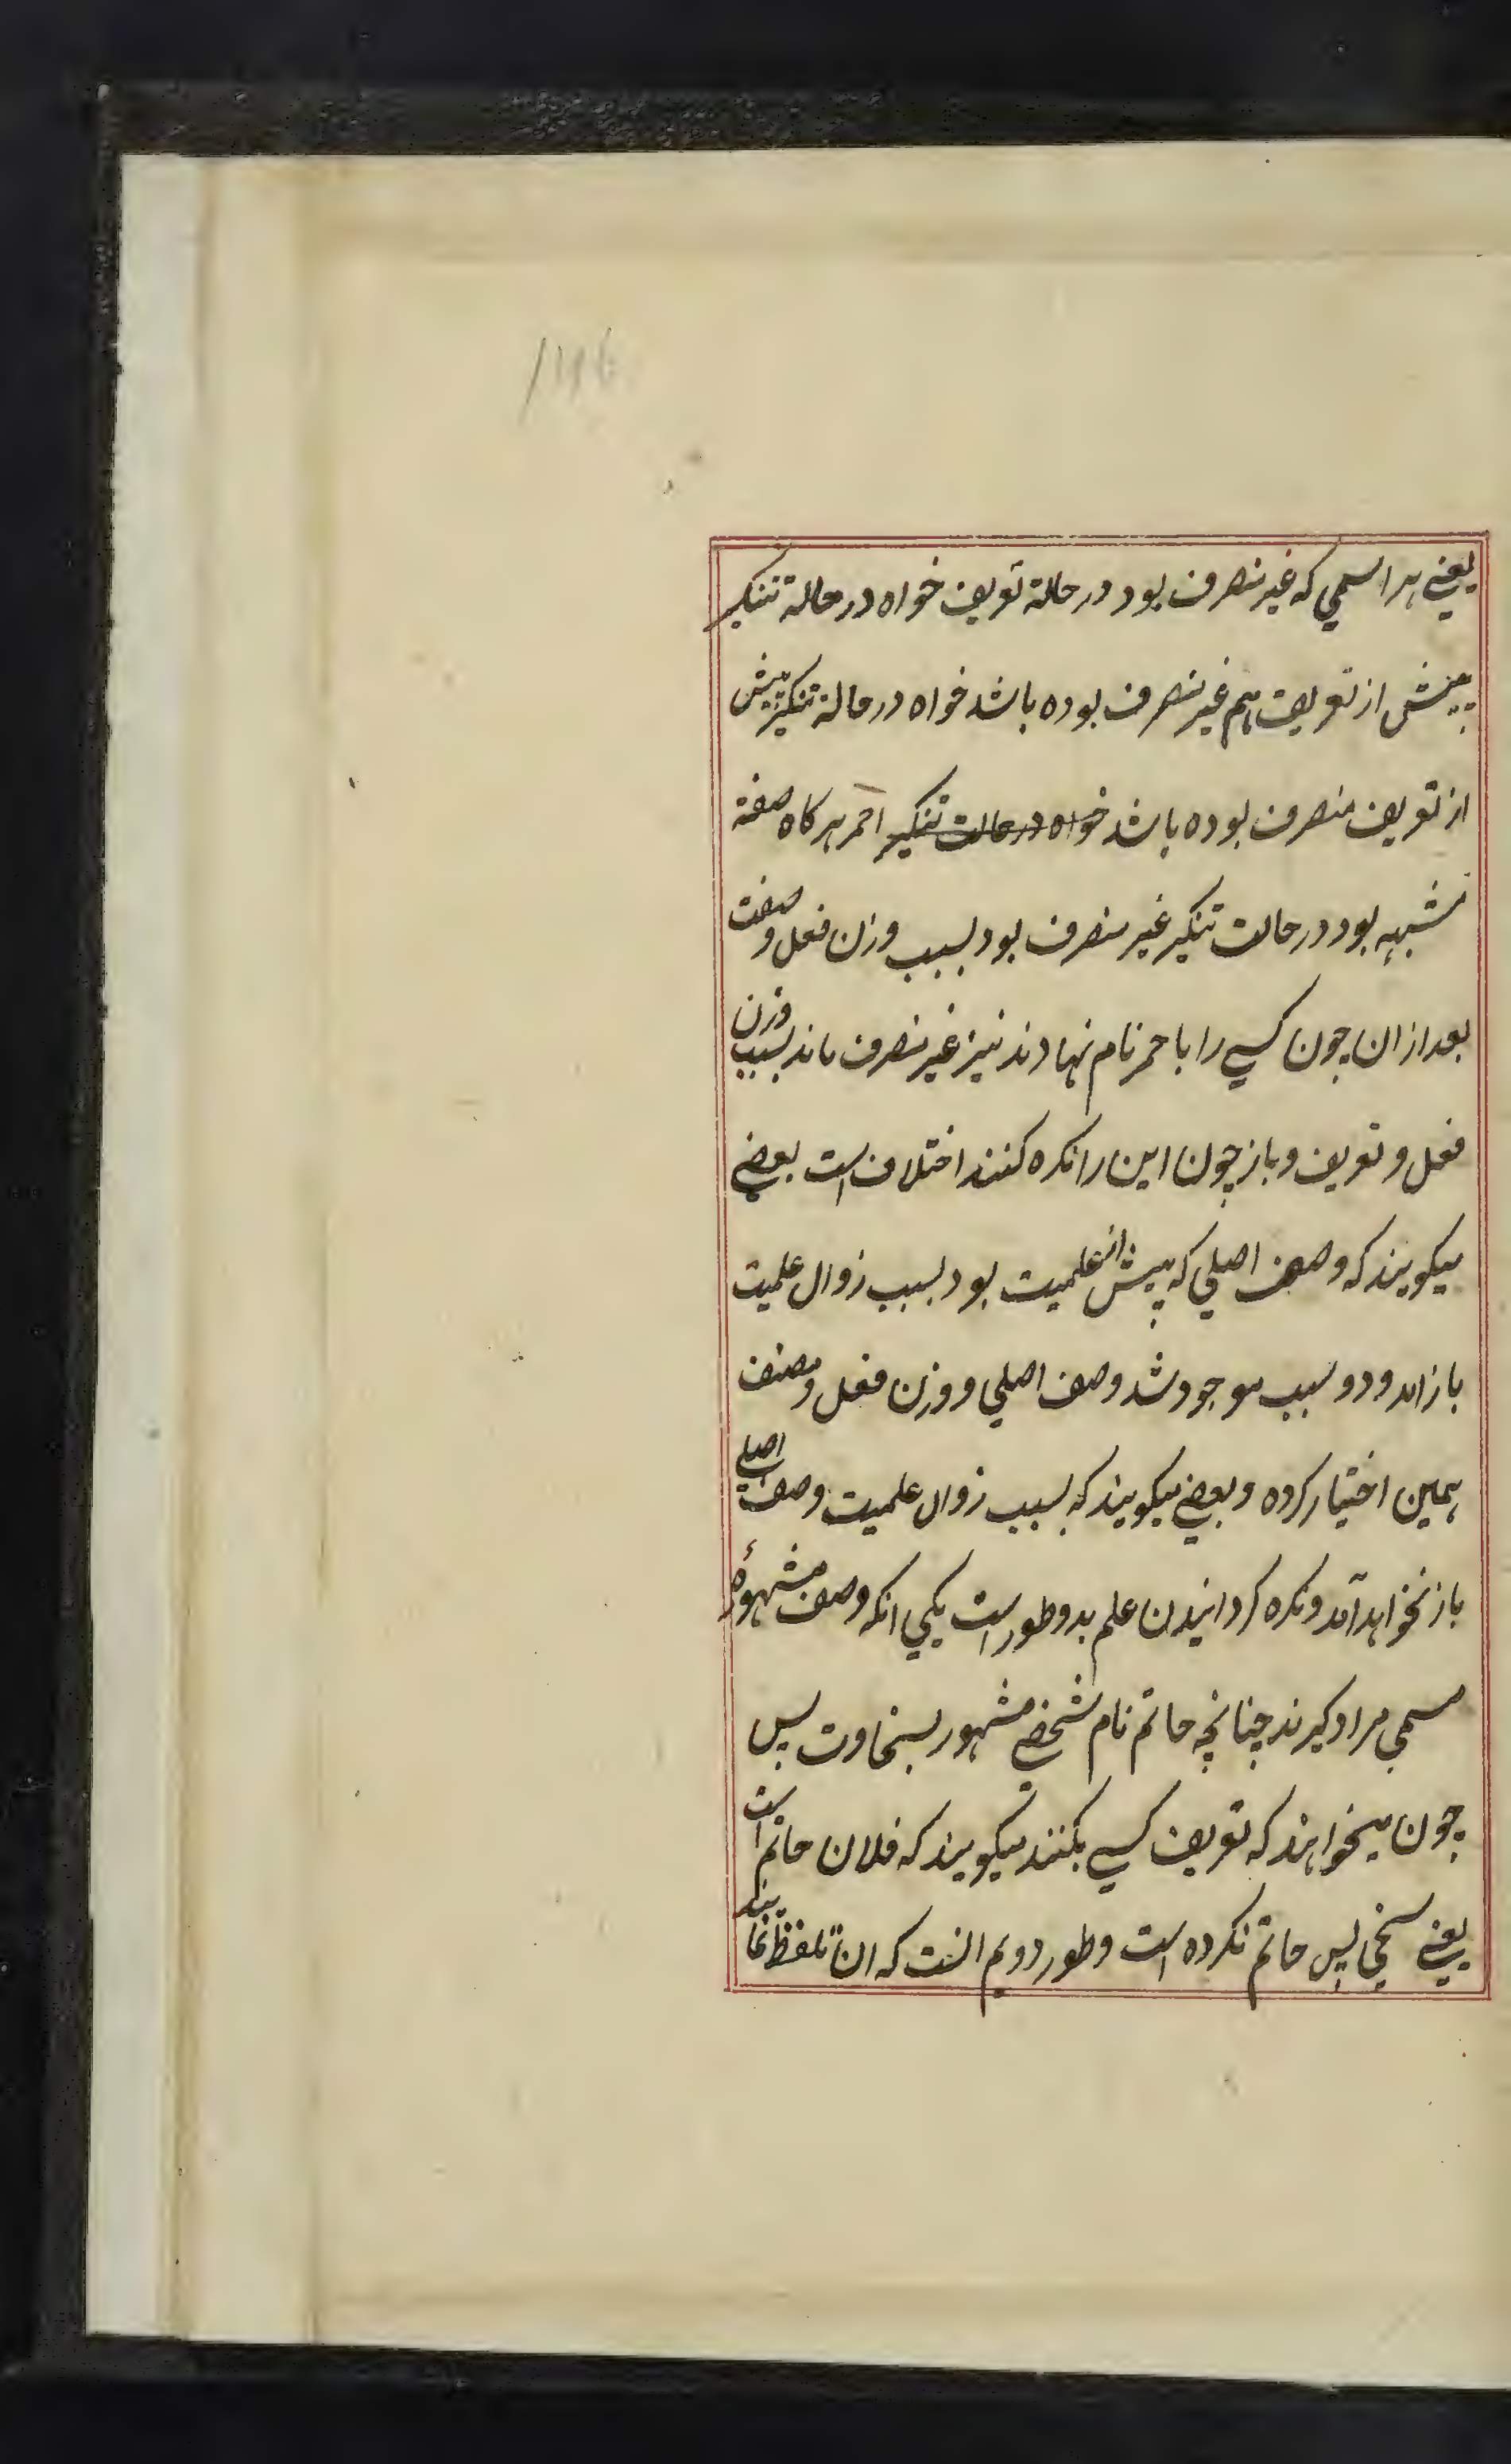 یعنی هر اسمی که غیر منصرف بود در حالة تعریف خواه در حالة تنکیر
پیش از تعریف هم غیر منصرف بوده باشد خواه در حالة تنکیر پیش
از تعریف منصرف بوده باشد خواه در حالت تنکیر احمر هرکاه صفة
مشبهه بود در حالت تنکیر غیر منصرف بود بسبب وزن فعل و صفت
بعد از ان چون کسی را باحمر نام نهادند نیز غیر منصرف ماند بسبب وزن
فعل و تعریف و باز چون این را نکره کنند اختلاف است بعضی
میکویند که وصف اصلی که پیش از علمیت بود بسبب زوال علمیت
باز امد و دو سبب موجود شد وصف اصلی و وزن فعل و مصنف
همین اختیار کرده و بعضی میکویند که بسبب زوال علمیت وصف اصلی
باز نخواهد آمد و نکره کردانیدن علم بدو طور است یکی انکه وصف مشهورهٔ
مسمی مراد کیرند چنانچه حاتم نام شخصی مشهور بسخاوت پس
چون میخواهند که تعریف کسی بکنند میکویند که فلان حاتم است
یعنی سخی پس حاتم نکرده است و طور دویم انست که ان تلفظ نمایند